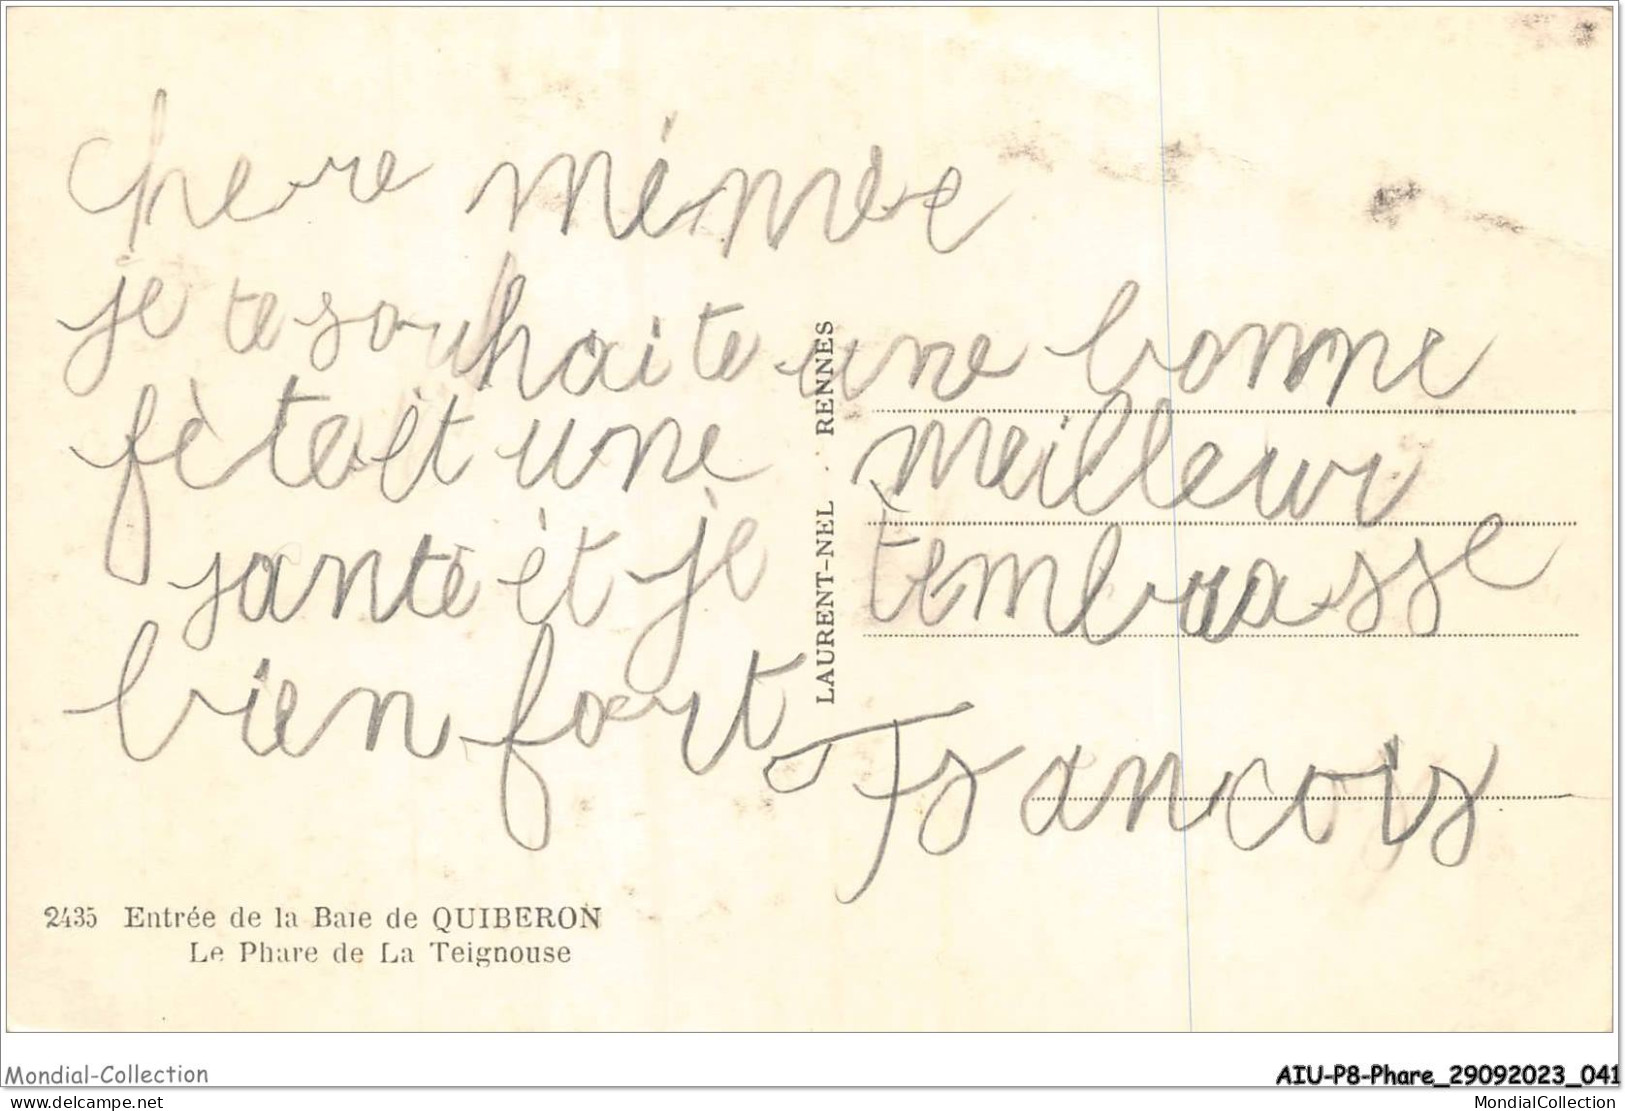 chere mémèe
je te souhaite une bonne
fète èt une meilleur
santé èt je t'embrasse
bien fort
Francois
LAURENT-NEL . RENNES
2435 Entrée de la Baie de QUIBERON
Le Phare de La Teignouse
Mondial-Collection
AIU-P8-Phare_29092023_041
delcampe.net
MondialCollection